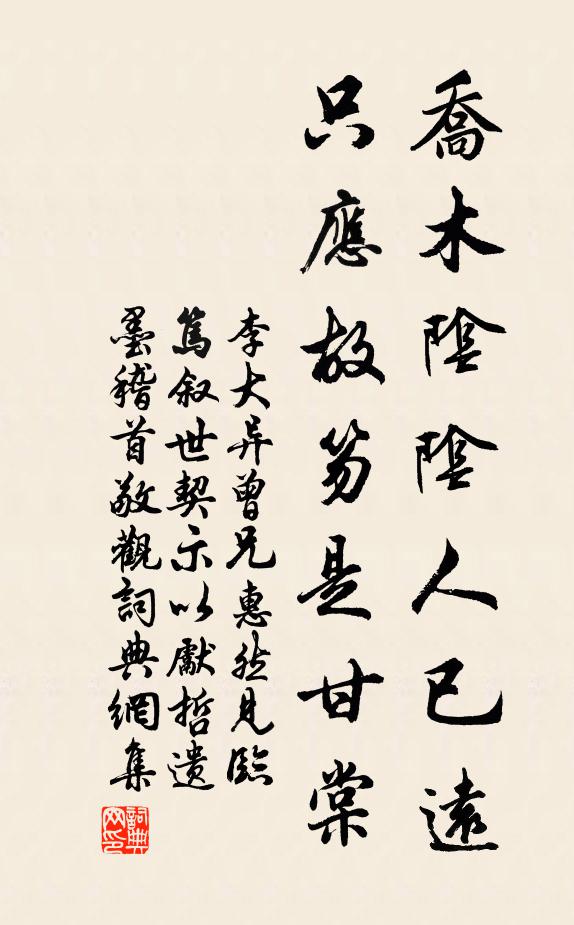 喬木陰陰人已遠
只應故笏是甘棠
李大异曾兄惠然見臨
篤叙世契示以獻哲遺
墨稽首敬觀詞典網集
詞典網印